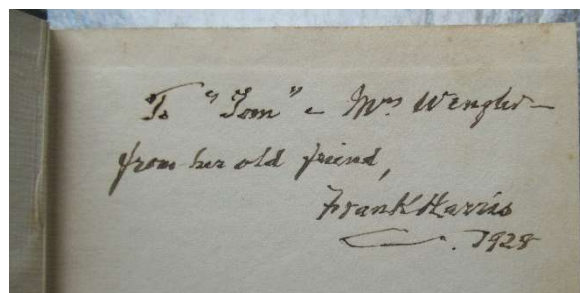 To "Tom" - Mrs Wengler -
from her old friend,
Frank Harris
1928